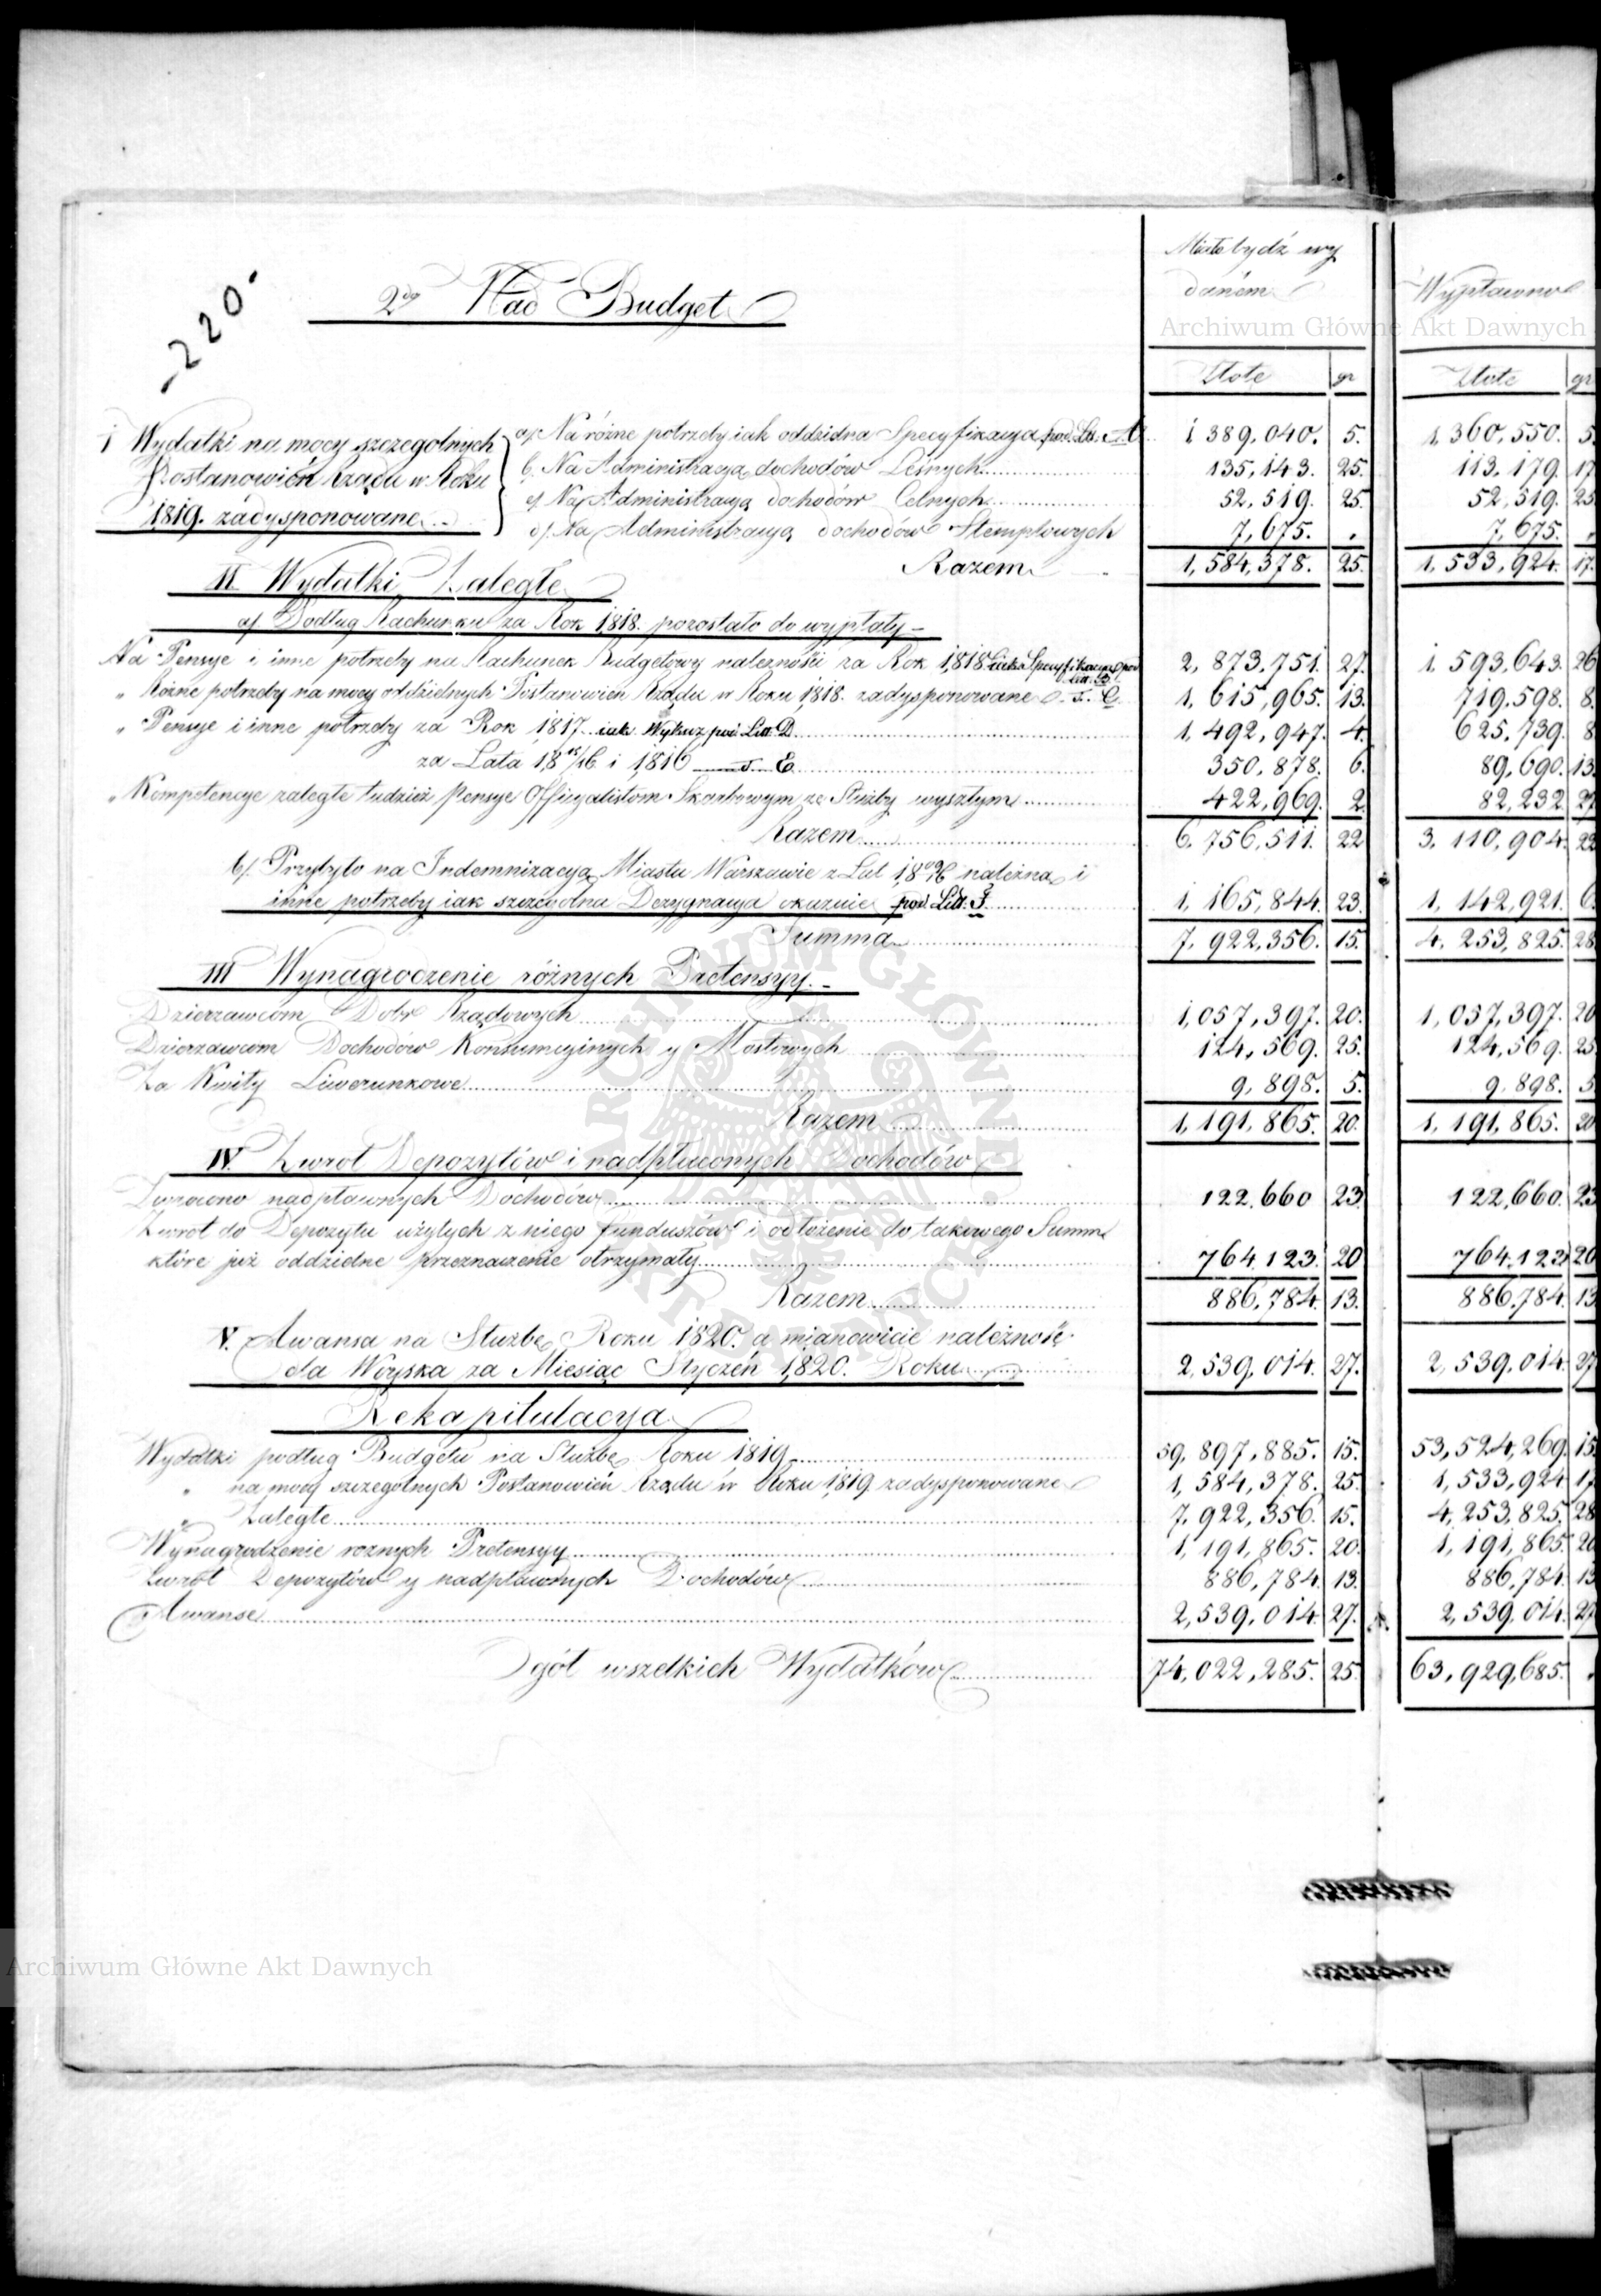 -220-
2do Nad Budget
Miało bydź wy
daném
Wypłacono
Archiwum Główne Akt Dawnych
Złote gr Złote gr
I Wydatki na mocy szczegolnych
Postanowień Rządu w Roku
1819. zadysponowane
a/. Na różne potrzeby iak oddzielna Specyfikacya pod Lit. A 1 389,040. 5. 1,360,550. 5
b. Na Administracyą dochodów Leśnych 135,143. 25. 113,179. 17
c/ Na Administracyą dochodów Celnych 52,519. 25. 52,519. 25
d/. Na Administracyą dochodów Stemplowych 7,675. . 7,675. .
Razem 1,584,378. 25. 1,533,924. 17.
II Wydatki Zaległe
a/ Podług Rachunku za Rok 1818. pozostało do wypłaty -
Na Pensye i inne potrzeby na Rachunek Budgetowy należności za Rok 1818. iak Specyfikacya pod Litt. B 2,873,751. 27. 1,593,643. 26
" Różne potrzeby na mocy oddzielnych Postanowień Rządu w Roku 1818. zadysponowane C. 1,615,965. 13. 719,598. 8.
" Pensye i inne potrzeby za Rok 1817. iak Wykaz pod Litt. D 1,492,947. 4. 625,739. 8
za Lata 1815/16 i 1816 E 350,878. 6. 89,690. 13
" Kompetencye zaległe tudzież Pensye Officyalistom Skarbowym ze Służby wyszłym 422,969. 2 82,232 27
Razem 6,756,511. 22 3,110,904. 22
b/. Przybyło na Indemnizacyą Miastu Warszawie z Lat należna i
inne potrzeby iak szczegolna Dezygnacya okazuie pod Litt. F. 1,165,844. 23. 1,142,921. 6
Summa 7,922,356. 15. 4,253,825. 28
III Wynagrodzenie różnych Pretensyy. -
Dzierzawcom Dobr Rządowych 1,057,397. 20. 1,057,397. 20
Dzierzawcom Dochodów Konsumcyinych y Mostowych 124,569. 25. 124,569. 25
Za Kwity Liwerunkowe 9,898. 5. 9,898. 5
Razem 1,191,865. 20. 1,191,865. 20
IV. Zwrot Depozytów i nadpłaconych Dochodów
Zwrócono nadpłaconych Dochodów 122,660 23 122,660. 23
Zwrot do Depozytu użytych z niego funduszów i odłożenie do takowego Summ
które już oddzielne przeznaczenie otrzymały 764,123. 20 764,123 20
Razem 886,784. 13. 886,784. 13
V. Awansa na Służbę Roku 1820. a mianowicie należność
dla Woyska za Miesiąc Styczeń 1820. Roku 2,539,014. 27. 2,539,014. 27
Rekapitulacya
Wydatki podług Budgetu na Służbę Roku 1819 59,897,885. 15. 53,524,269. 15
" na mocy szczegolnych Postanowień Rządu w Roku 1819 zadysponowane 1,584,378. 25. 1,533,924 17
" Zaległe 7,922,356. 15. 4,253,825. 28
Wynagrodzenie roznych Pretensyy 1,191,865. 20. 1,191,865. 20
Zwrot Depozytów y nadpłaconych Dochodów 886,784. 13. 886,784. 13
Awanse 2,539,014. 27. 2,539,014. 27
Ogół wszelkich Wydatków 74,022,285. 25. 63,929,685. .
Archiwum Główne Akt Dawnych